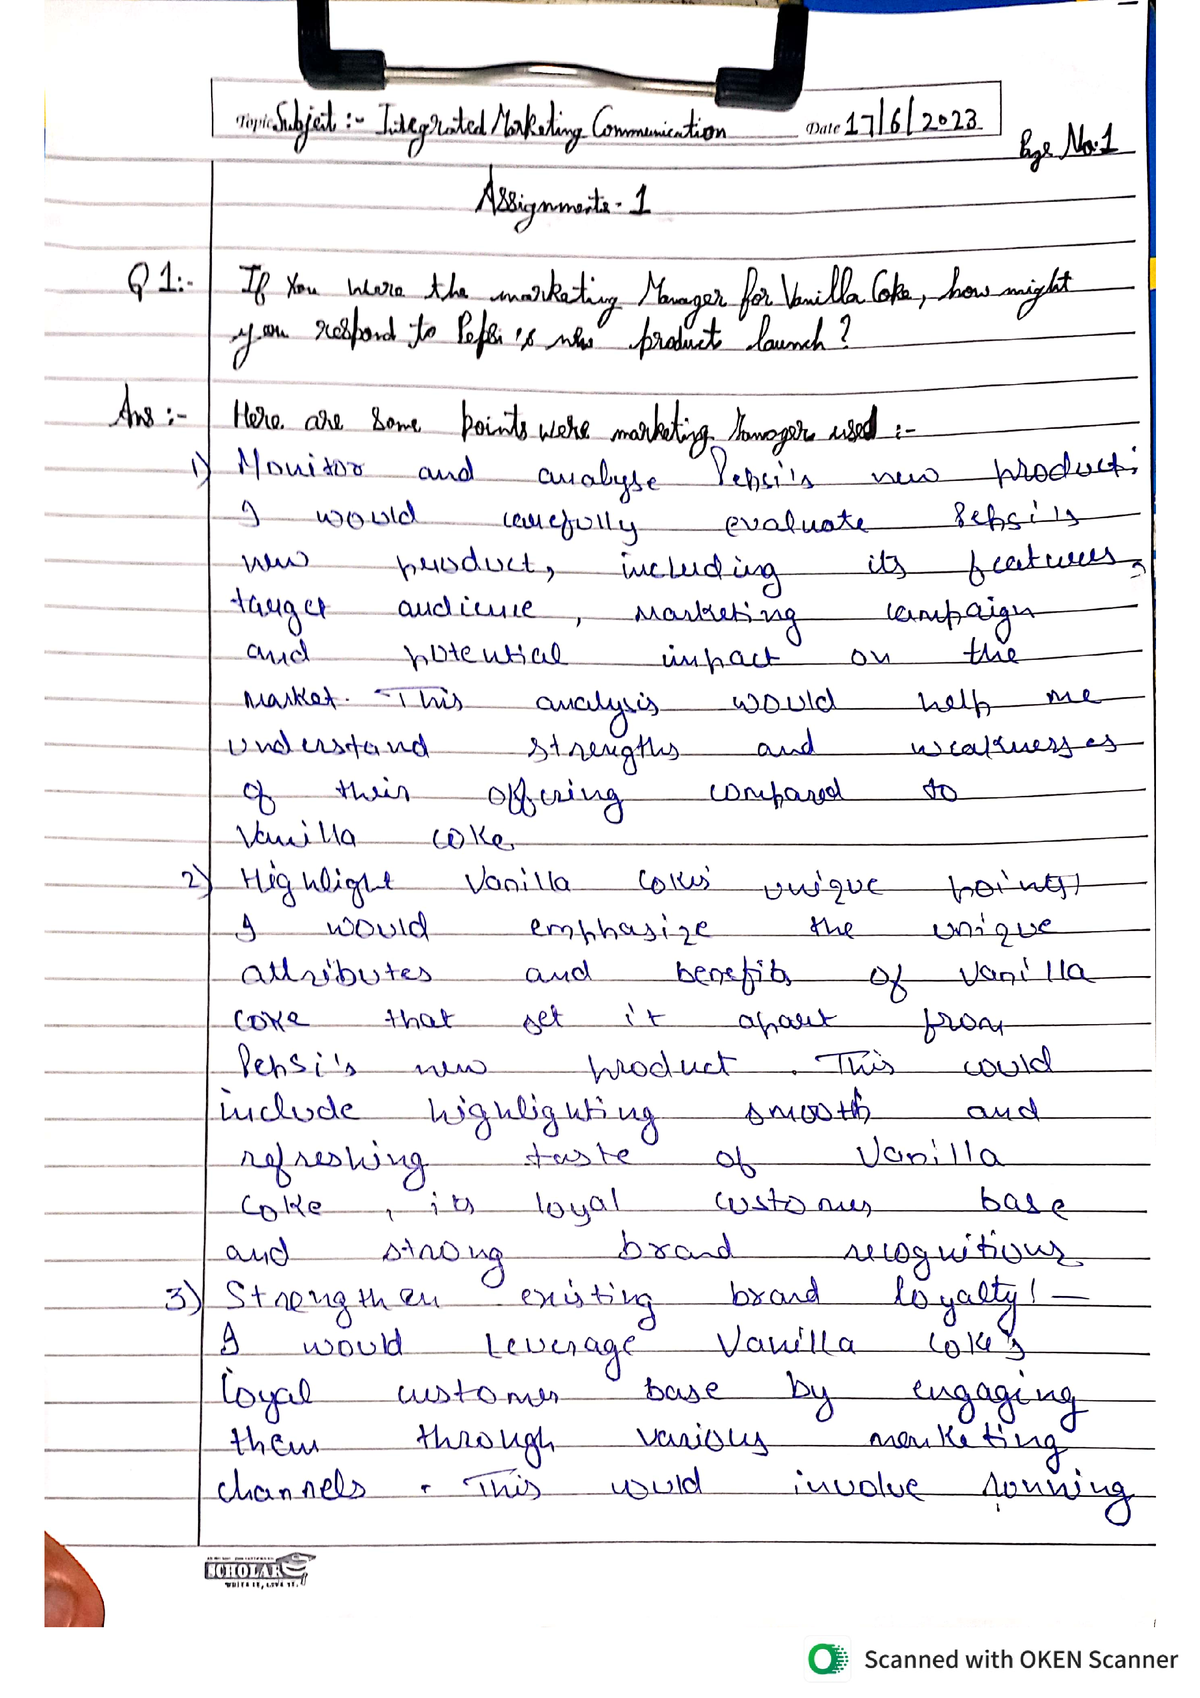 Topic Subject :- Integrated Marketing Communication Date 17/6/2023
Page No:1
Assignments - 1
Q1:- If You were the marketing Manager for Vanilla Coke, how might
you respond to Pepsi's new product launch?
Ans :- Here are some points were marketing Manager used :-
1) Monitor and analyse Pepsi's new product:
I would carefully evaluate Pepsi's
new product, including its features,
target audience, marketing campaign
and potential impact on the
market. This analysis would help me
understand strengths and weaknesses
of their offering compared to
Vanilla coke.
2) Highlight Vanilla Cokes' unique points)
I would emphasize the unique
attributes and benefits of Vanilla
Coke that set it apart from
Pepsi's new product. This could
include highlighting smooth and
refreshing taste of Vanilla
Coke, its loyal customer base
and strong brand recognitions
3) Strengthen existing brand loyalty! —
I would Leverage Vanilla Coke's
loyal customer base by engaging
them through various marketing
channels. This would involve running
SCHOLAR
WRITE IT, LIVE IT.
Scanned with OKEN Scanner